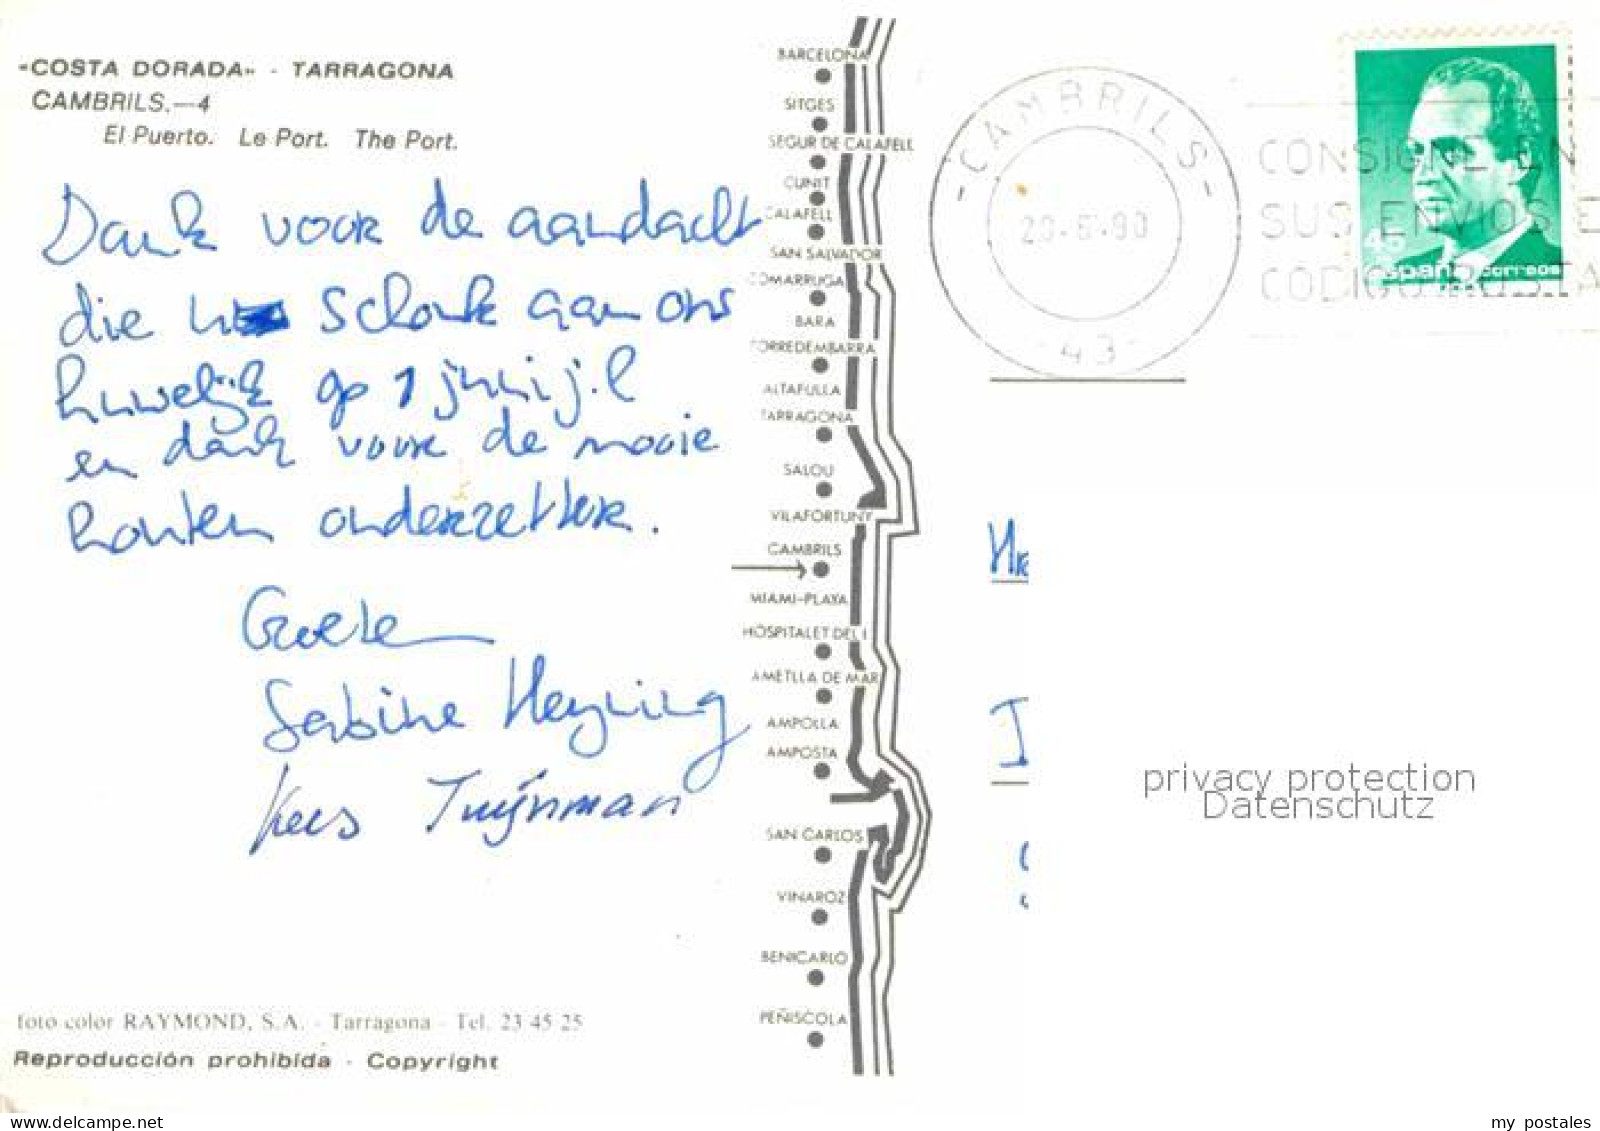 «COSTA DORADA» - TARRAGONA
CAMBRILS.—4
El Puerto. Le Port. The Port.
Dank voor de aandacht
die u schonk aan ons
huwelijk op 1 juni j.l
en dank voor de mooie
houten onderzetter.
Groeten
Sabine Heyning
Kees Tuijnman
foto color RAYMOND, S.A. - Tarragona - Tel. 23 45 25
Reproducción prohibida - Copyright
BARCELONA
SITGES
SEGUR DE CALAFELL
CUNIT
CALAFELL
SAN SALVADOR
COMARRUGA
BARA
TORREDEMBARRA
ALTAFULLA
TARRAGONA
SALOU
VILAFORTUNY
CAMBRILS
MIAMI-PLAYA
HOSPITALET DEL I
AMETLLA DE MAR
AMPOLLA
AMPOSTA
SAN CARLOS
VINAROZ
BENICARLO
PEÑISCOLA
-CAMBRILS-
-43-
CONSIGNE EN
SUS ENVIOS E
CODIGO POSTA
45
españa correos
privacy protection
Datenschutz
www.delcampe.net
my_postales